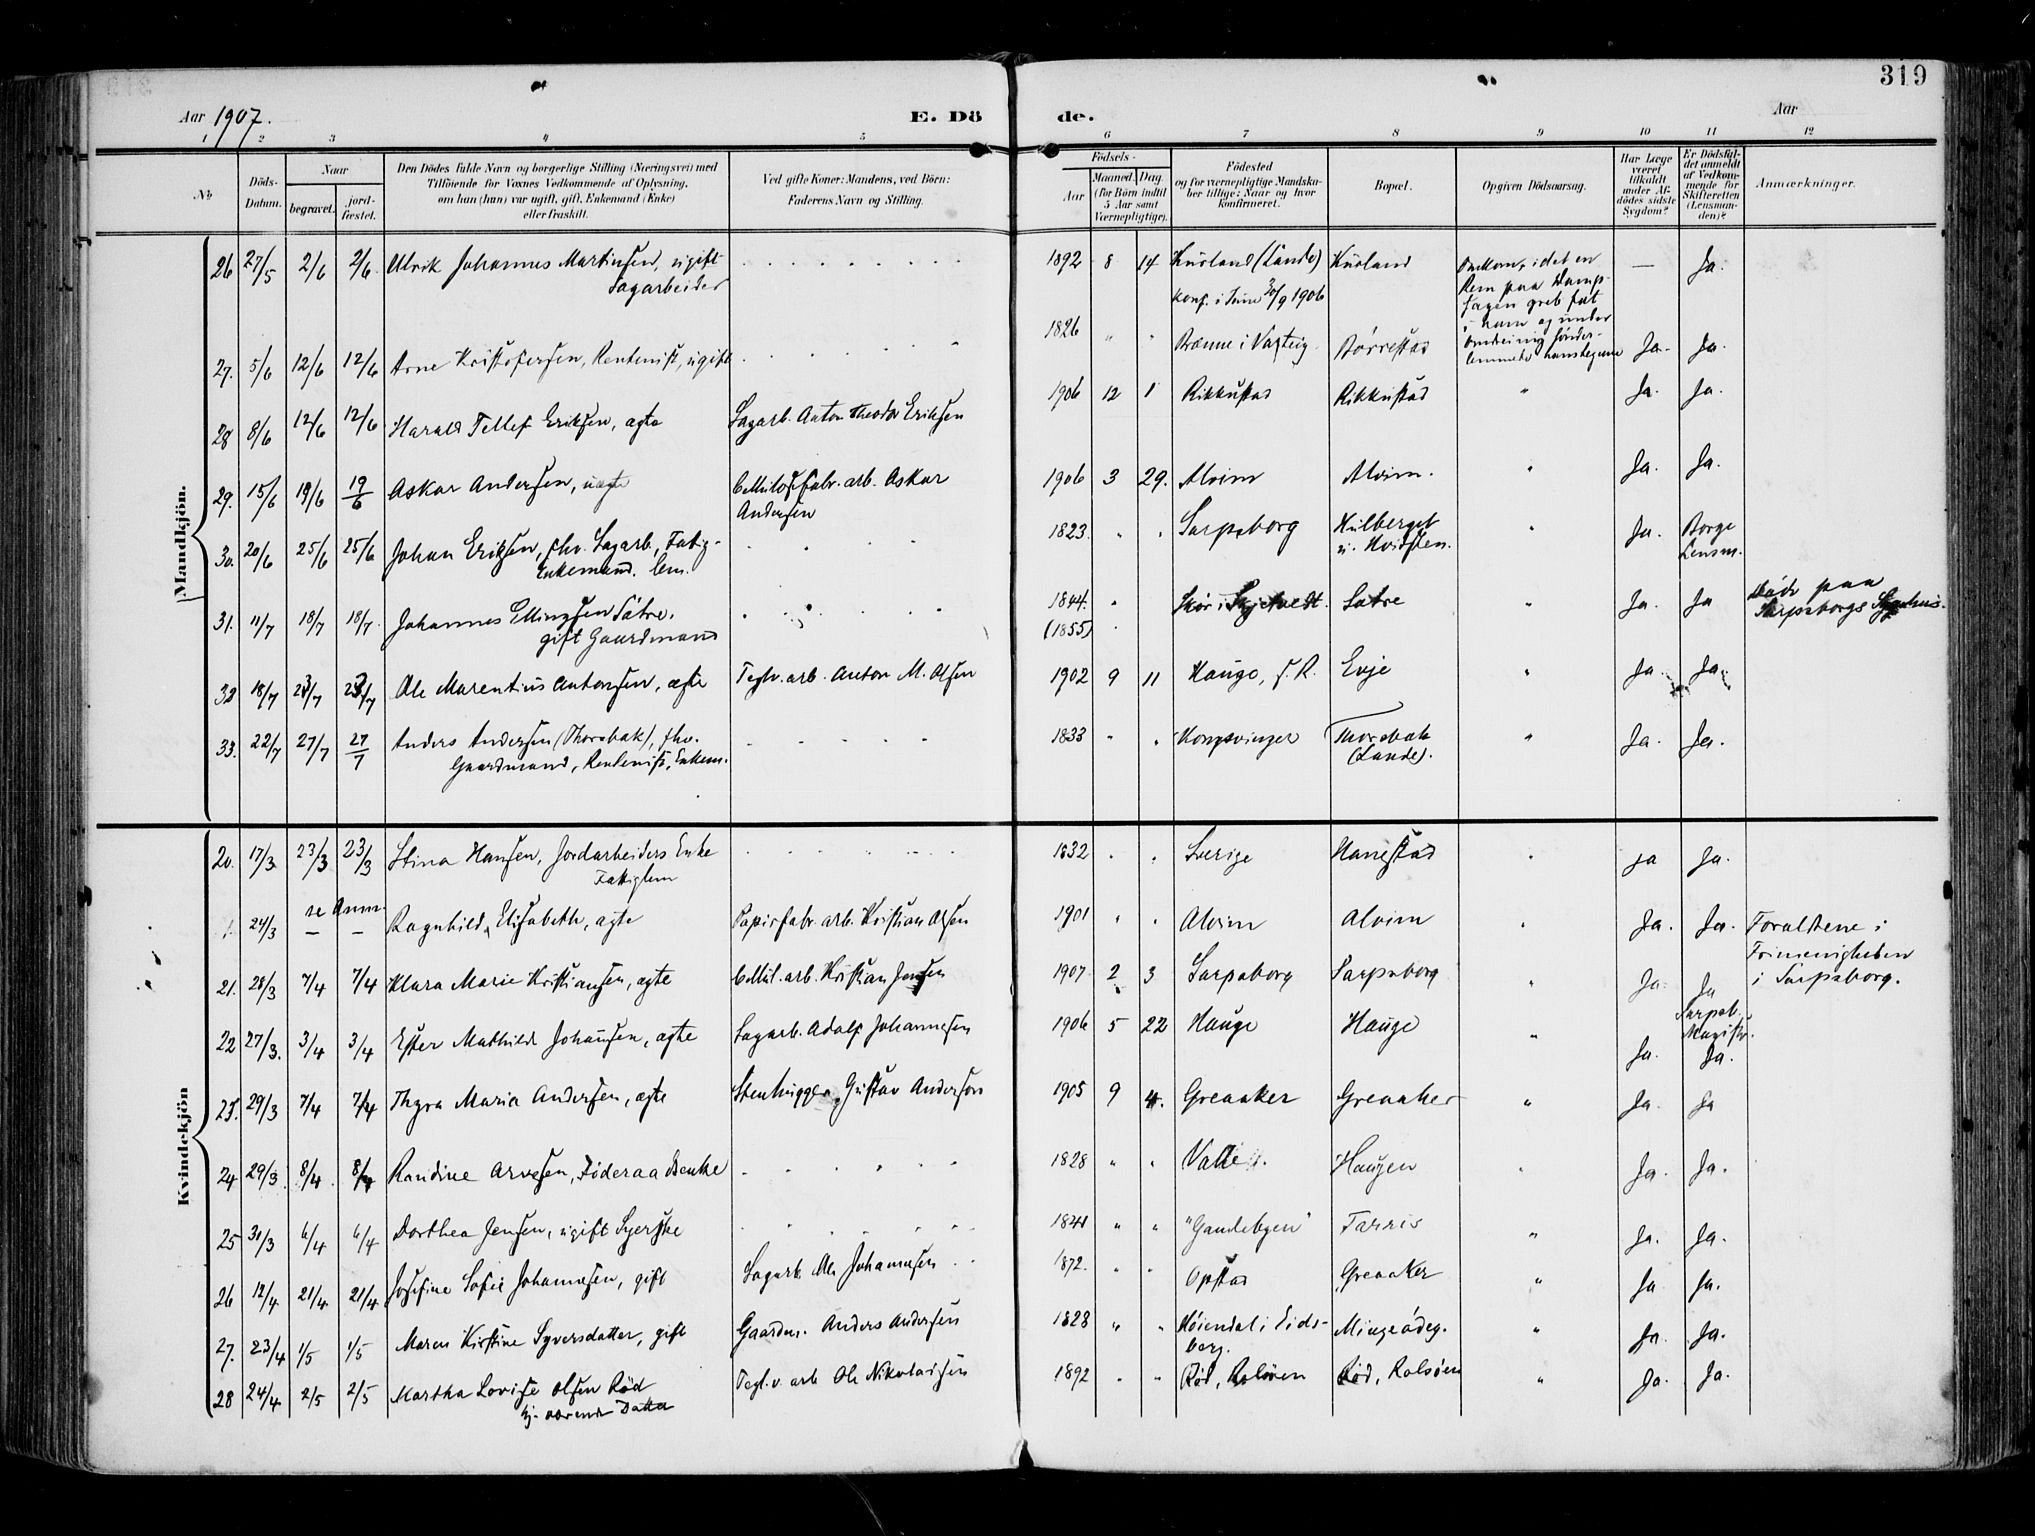 319
Aar 1907. E. Dö de. Aar
1 2 3 4 5 6 7 8 9 10 11 12
No
Döds-Datum.
Naar
begravet.
jord-fæstet.
Den Dödes fulde Navn og borgerlige Stilling (Næringsvei) med
Tilföiende for Voxnes Vedkommende af Oplysning,
om han (hun) var ugift, gift, Enkemand (Enke)
eller fraskilt.
Ved gifte Koner: Mandens, ved Börn:
Faderens Navn og Stilling.
Födsels-
Aar
Maaned. Dag.
(for Börn indtil
5 Aar samt
Værnepligtige).
Födested
og for værnepligtige Mandska-
ber tillige: Naar og hvor
konfirmeret.
Bopæl.
Opgiven Dödsaarsag.
Har Læge
været
tilkaldt
under Af-
dödes sidste
Sygdom?
Er Dödsfal-
det anmeldt
af Vedkom-
mende for
Skifteretten
(Lensman-
den)?
Anmærkninger.
Mandkjön.
26 27/5 2/6 2/6 Ulrik Johannes Martinsen, ugift 1892 8 14 Kurland (Lande) Kurland Omkom, idet en — Ja.
Sagarbeider Konf. i Tune 30/9 1906 Rem paa Damp-
sagen greb fat
i ham og under
27. 5/6 12/6 12/6 Arne Kristofersen, Rentenist, ugift 1826 " " Brænne i Vasteig Børrestad Ja. Ja.
28 8/6 12/6 12/6 Harald Tellef Eriksen, ægte Sagarb. Anton Theodor Eriksen 1906 12 1 Rikkustad Rikkustad " Ja. Ja.
29. 15/6 19/6 19/6 Askar Andersen, uægte Cellulosefabr. arb. Askar 1906 3 29. Alvim Alvim. " Ja. Ja.
Andersen
30. 20/6 25/6 25/6 Johan Eriksen, fhv. Sagarb., Fattig- 1823. " " Sarpsborg Hulberget " Ja. Borge
Enkemand. lem. u. Kvidsten. Lensm.
31. 11/7 18/7 18/7 Johannes Ellingsen Sätre, 1844. " Skör i Skjeberg. Satre " Ja. Ja Död paa
gift Gaardmand (1855) Sarpsborgs Sygehus.
32 18/7 23/7 23/7 Ole Marentius Antonsen, ægte Teglv. arb. Anton M. Olsen 1902 9 11 Haugo, f. R. Evje " Ja. Ja.
33. 22/7 27/7 27/7 Anders Andersen (Thorsbak), fhv. 1833 " " Kongsvinger Thorsbak " Ja. Ja.
Gaardmand, Rentenist, Enkem. (Lande).
Kvindekjön
20. 17/3 23/3 23/3 Stina Hansen, Jordarbeiders Enke 1832 " " Sverige Hanestad " Ja Ja.
Fattiglem
se Anm.
1. 24/3 — — Ragnhild Elisabeth, ægte Papirfabr. arb. Kristian Olsen 1901 " " Alvim Alvim " Ja. Ja. Foraldrene i
Frimenigheden
i Sarpsborg.
21. 28/3 7/4 7/4 Klara Marie Kristiansen, ægte Cellul. arb. Kristian Jensen 1907 2 3 Sarpsborg Sarpsborg " Ja. Ja
Sarpsb.
Magistr.
22 27/3. 3/4 3/4 Ester Mathilde Johansen, ægte Sagarb. Adolf Johannesen 1906 5 22 Hauge Hauge " Ja. Ja.
23. 29/3 7/4 7/4 Thyra Maria Andersen, ægte Stenhugger Gustav Anderson 1905 9 4. Greaaker Greaaker " Ja. Ja
24 29/3 8/4 8/4 Randine Arvesen, Föderaadsenke 1828 " " Valle Haugen " Ja. Ja.
25 31/3 6/4 6/4 Dorthea Jensen, ugift Syerske 1841 " " "Gandebyen" Farris " Ja. Ja.
26 12/4 21/4 21/4 Josefine Sofie Johannesen, gift Sagarb. Ole Johannesen 1872. " " Opstad Greaaker " Ja Ja.
27. 23/4 1/5 1/5 Maren Kirstine Syversdatter, gift Gaardm. Anders Andersen 1828 " " Høiendal i Eids- Mingeödeg. " Ja. Ja.
berg.
28 24/4 2/5 2/5 Martha Lovise Olsen Röd Tegl. v. arb Ole Nikolaisen 1892 " " Röd, Rolsöen Röd, Rolsöen " Ja. Ja.
hj. værende Datter